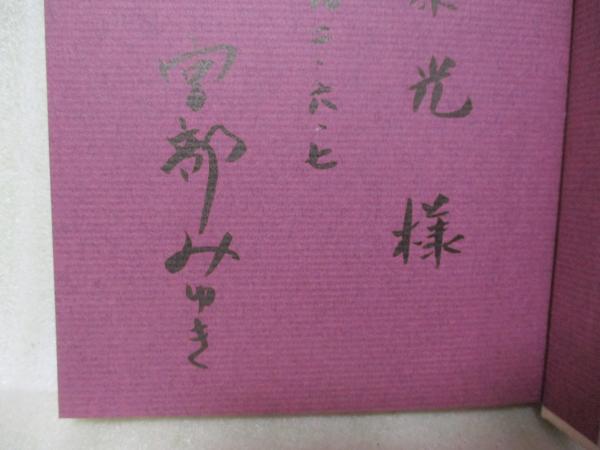 光様
二・六・七
宮部みゆき